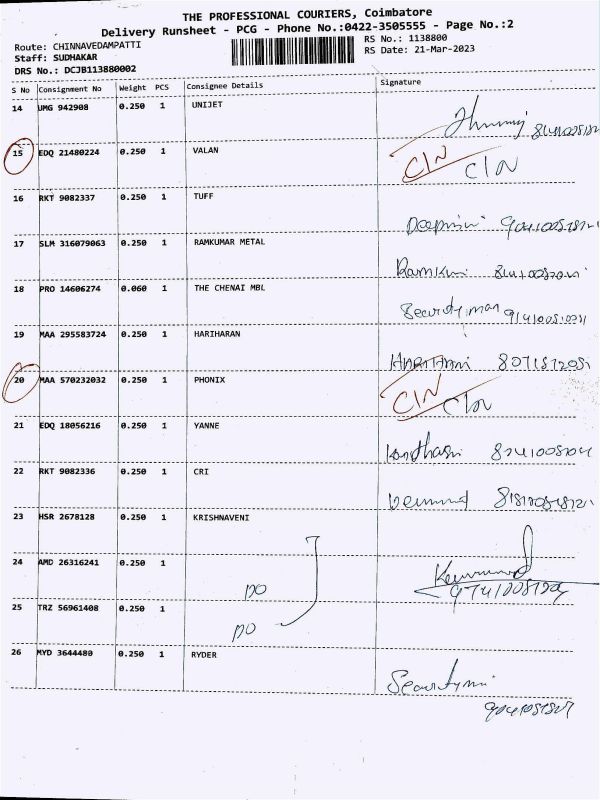 THE PROFESSIONAL COURIERS, Coimbatore
Delivery Runsheet - PCG - Phone No.:0422-3505555 - Page No.:2
Route: CHINNAVEDAMPATTI
RS No.: 1138800
Staff: SUDHAKAR
RS Date: 21-Mar-2023
DRS No.: DCJB113880002
S No Consignment No Weight PCS Consignee Details Signature
14 UMG 942908 0.250 1 UNIJET
15 EDQ 21480224 0.250 1 VALAN CIN CIN
16 RKT 9082337 0.250 1 TUFF
17 SLM 316079063 0.250 1 RAMKUMAR METAL
18 PRO 14606274 0.060 1 THE CHENAI MBL Security man
19 MAA 295583724 0.250 1 HARIHARAN
20 MAA 570232032 0.250 1 PHONIX CIN CIN
21 EDQ 18056216 0.250 1 YANNE
22 RKT 9082336 0.250 1 CRI
23 HSR 2678128 0.250 1 KRISHNAVENI
24 AMD 26316241 0.250 1 DO
25 TRZ 56961408 0.250 1 DO
26 MYD 3644480 0.250 1 RYDER